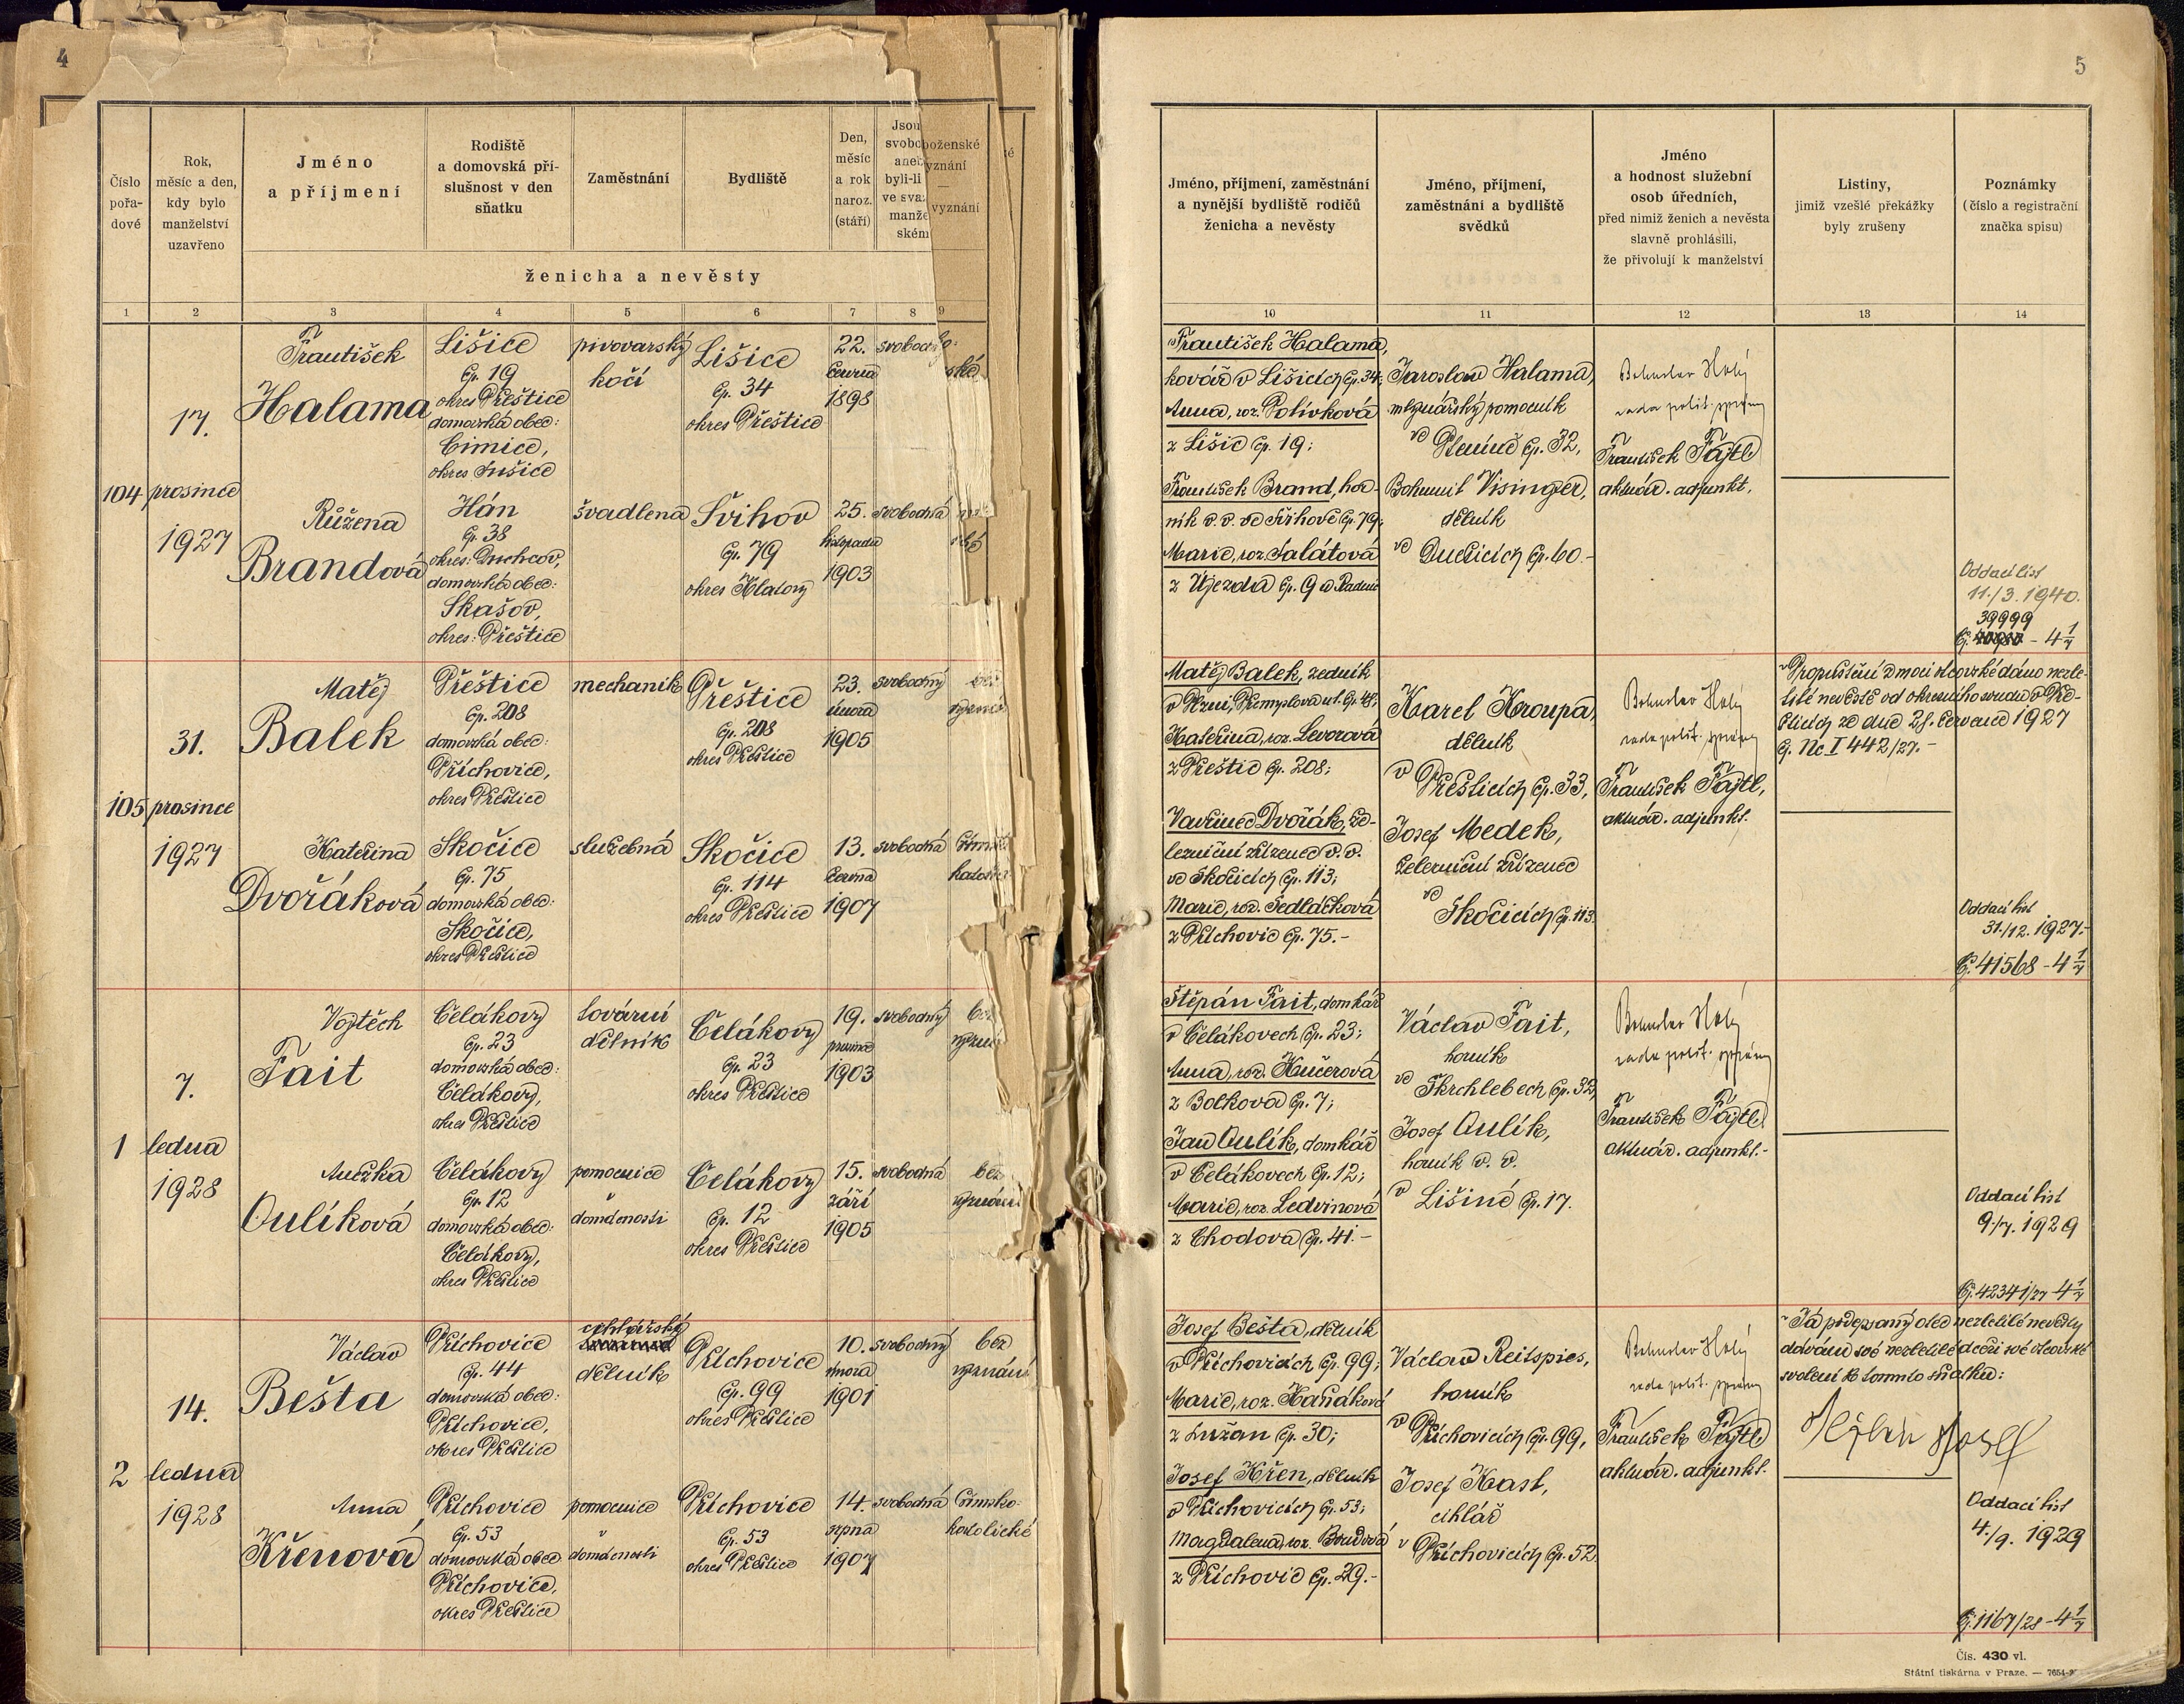 4
Číslo pořa-dové
Rok, měsíc a den, kdy bylo manželství uzavřeno
Jméno a příjmení
Rodiště a domovská pří-slušnost v den sňatku
Zaměstnání
Bydliště
Den, měsíc a rok naroz. (stáří)
ženicha a nevěsty
1 2 3 4 5 6 7 8 9
104
17.
prosince
1927
František
Halama
Lišice
Čp. 19
okres Přeštice
domovská obec:
Čimice,
okres Sušice
pivovarský
kočí
Lišice
čp. 34
okres Přeštice
22.
června
1898
Růžena
Brandová
Hán
Čp. 38
okres: Duchcov,
domovská obec:
Skašov,
okres: Přeštice
švadlena
Švihov
Čp. 79
okres Klatovy
25.
listopadu
1903
svobodná
105
31.
prosince
1927
Matěj
Balek
Přeštice
Čp. 208
domovská obec:
Příchovice,
okres Přeštice
mechanik
Přeštice
Čp. 208
okres Přeštice
23.
února
1905
svobodný
bez
Kateřina
Dvořáková
Skočice
Čp. 75
domovská obec:
Skočice,
okres Přeštice
služebná
Skočice
Čp. 114
okres Přeštice
13.
června
1907
svobodná
1
7.
ledna
1928
Vojtěch
Fait
Čelákovy
Čp. 23
domovská obec:
Čelákovy,
okres Přeštice
tovární
dělník
Čelákovy
Čp. 23
okres Přeštice
19.
prosince
1903
svobodný
bez
Anežka
Oulíková
Čelákovy
Čp. 12
domovská obec:
Čelákovy,
okres Přeštice
pomocnice
v domácnosti
Čelákovy
Čp. 12
okres Přeštice
15.
září
1905
svobodná
bez
vyznání
2
14.
ledna
1928
Václav
Bešta
Příchovice
Čp. 44
domovská obec:
Příchovice,
okres Přeštice
cihlářský
dělník
Příchovice
Čp. 99
okres Přeštice
10.
února
1901
svobodný
bez
vyznání
Anna
Křenová
Příchovice
Čp. 53
domovská obec
Příchovice,
okres Přeštice
pomocnice
v domácnosti
Příchovice
Čp. 53
okres Přeštice
14.
srpna
1907
svobodná
římsko-
katolické
5
Jméno, příjmení, zaměstnání a nynější bydliště rodičů ženicha a nevěsty
Jméno, příjmení, zaměstnání a bydliště svědků
Jméno a hodnost služební osob úředních, před nimiž ženich a nevěsta slavně prohlásili, že přivolují k manželství
Listiny, jimiž vzešlé překážky byly zrušeny
Poznámky (číslo a registrační značka spisu)
10 11 12 13 14
František Halama,
kovář v Lišicích čp. 34;
Anna, roz. Polívková
z Lišic čp. 19;
František Brand, hor-
ník v. v. ve Švihově čp. 79;
Marie, roz. Salátová
z Újezda čp. 9
Jaroslav Halama,
mlynářský pomocník
čp. 32,
Bohumil Visinger,
dělník
čp. 60-
Bohuslav Holý
rada polit. správy
František Fajtl
aktuár. adjunkt.
Oddací list
11./3. 1940.
39999
- 4 1/7
Matěj Balek, zedník
v Plzni, Přemyslova ul. čp. 48;
Kateřina, roz. Levorová
z Přeštic čp. 208;
Vavřinec Dvořák, že-
lezniční zřízenec v. v.
ve Skočicích čp. 113;
Marie, roz. Sedláčková
z Příchovic čp. 75.-
Karel Kroupa,
dělník
v Přešticích čp. 33,
Josef Medek,
železniční zřízenec
ve Skočicích čp. 113
Bohuslav Holý
rada polit. správy
František Fajtl,
aktuár. adjunkt.
Propuštění z moci otcovské dáno nezle-
tilé nevěstě od okresního soudu v Pře-
šticích ze dne 28. července 1927
Č. Nc. I 442/27.-
Oddací list
31./12. 1927.-
Č. 41568 - 4 1/7
Štěpán Fait, domkář
v Čelákovech čp. 23;
Anna, roz. Kučerová
z Bolkova čp. 7;
Jan Oulík, domkář
v Čelákovech čp. 12;
Marie, roz. Ledvinová
z Chodova čp. 41.-
Václav Fait,
horník
ve Škrchlebech čp. 32,
Josef Oulík,
horník v. v.
v Lišině čp. 17.
Bohuslav Holý
rada polit. správy
František Fajtl,
aktuár. adjunkt.-
Oddací list
9./7. 1929
Č. 42341/27 - 4 1/7
Josef Bešta, dělník
v Příchovicích čp. 99;
Marie, roz.
z Lužan čp. 30;
Josef Křen, dělník
v Příchovicích čp. 53;
Magdalena, roz.
z Příchovic čp. 29.-
Václav Reitspies,
horník
v Příchovicích čp. 99,
Josef Kast,
cihlář
v Příchovicích čp. 52.
Bohuslav Holý
rada polit. správy
František Fajtl
aktuár. adjunkt.
Já podepsaný otec nezletilé nevěsty
dávám své nezletilé dceři své otcovské
svolení k tomuto sňatku:
Josef
Oddací list
4./9. 1929
Č. 1167/28 - 4 1/7
Čís. 430 vl.
Státní tiskárna v Praze. —